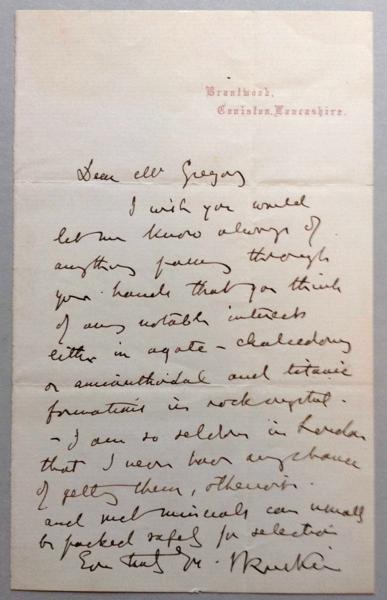 Brantwood,
Coniston, Lancashire.
Dear Mr Gregory
I wish you would
let me know always of
anything passing through
your hands that you think
of any notable interest
either in agate - chalcedony
or amianthoidal and titanic
formations in rock crystal.
- I am so seldom in London
that I never have any chance
of getting them, otherwise.
and most minerals can usually
be packed safely for selection
Ever truly yrs. JRuskin